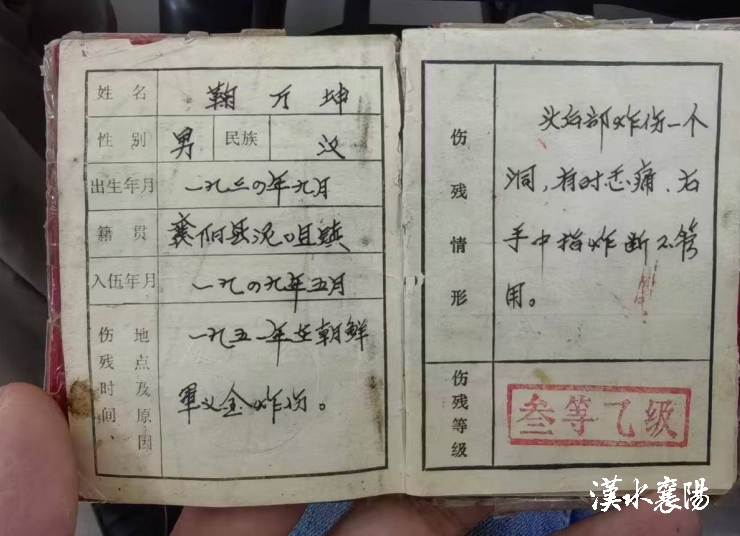 姓名 鞠万坤
性别 男 民族 汉
出生年月 一九三〇年九月
籍贯 襄阳县泥咀镇
入伍年月 一九四九年五月
伤残时间 地点及原因
一九五一年在朝鲜
军义金炸伤。
伤残情形
头右部炸伤一个
洞,有时悉痛、右
手中指炸断不管
用。
伤残等级
叁等乙级
漢水襄陽